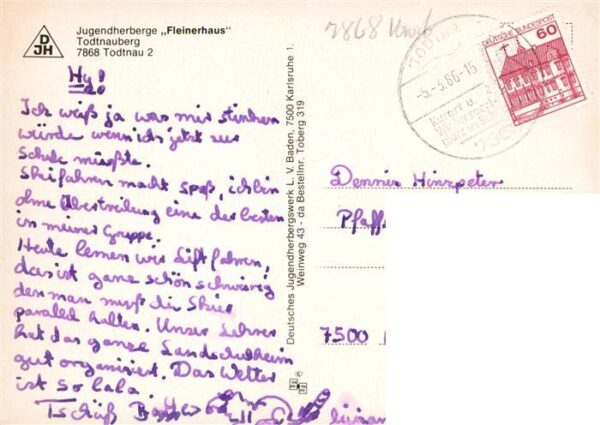 DJH
Jugendherberge „Fleinerhaus"
Todtnauberg
7868 Todtnau 2
Hy!
Ich weiß ja was mir stinken
würde wenn ich jetzt zur
Schule müßte.
Skifahren macht Spaß, ich bin
ohne Übertreibung eine der besten
in meiner Gruppe.
Heute lernen wir Lift fahren,
das ist ganz schön schwierig
den man muß die Skier
parallel halten. Unser Lehrer
hat das ganze Landschulheim
gut organisiert. Das Wetter
ist so lala.
Tschüß
Deutsches Jugendherbergswerk L. V. Baden, 7500 Karlsruhe 1,
Weinweg 43 - da Bestellnr. Toberg 319
7868
TODTNA
-5.-3.86-15
DEUTSCHE BUNDESPOST
60
Dennis Hinzpeter
Pfaff
7500